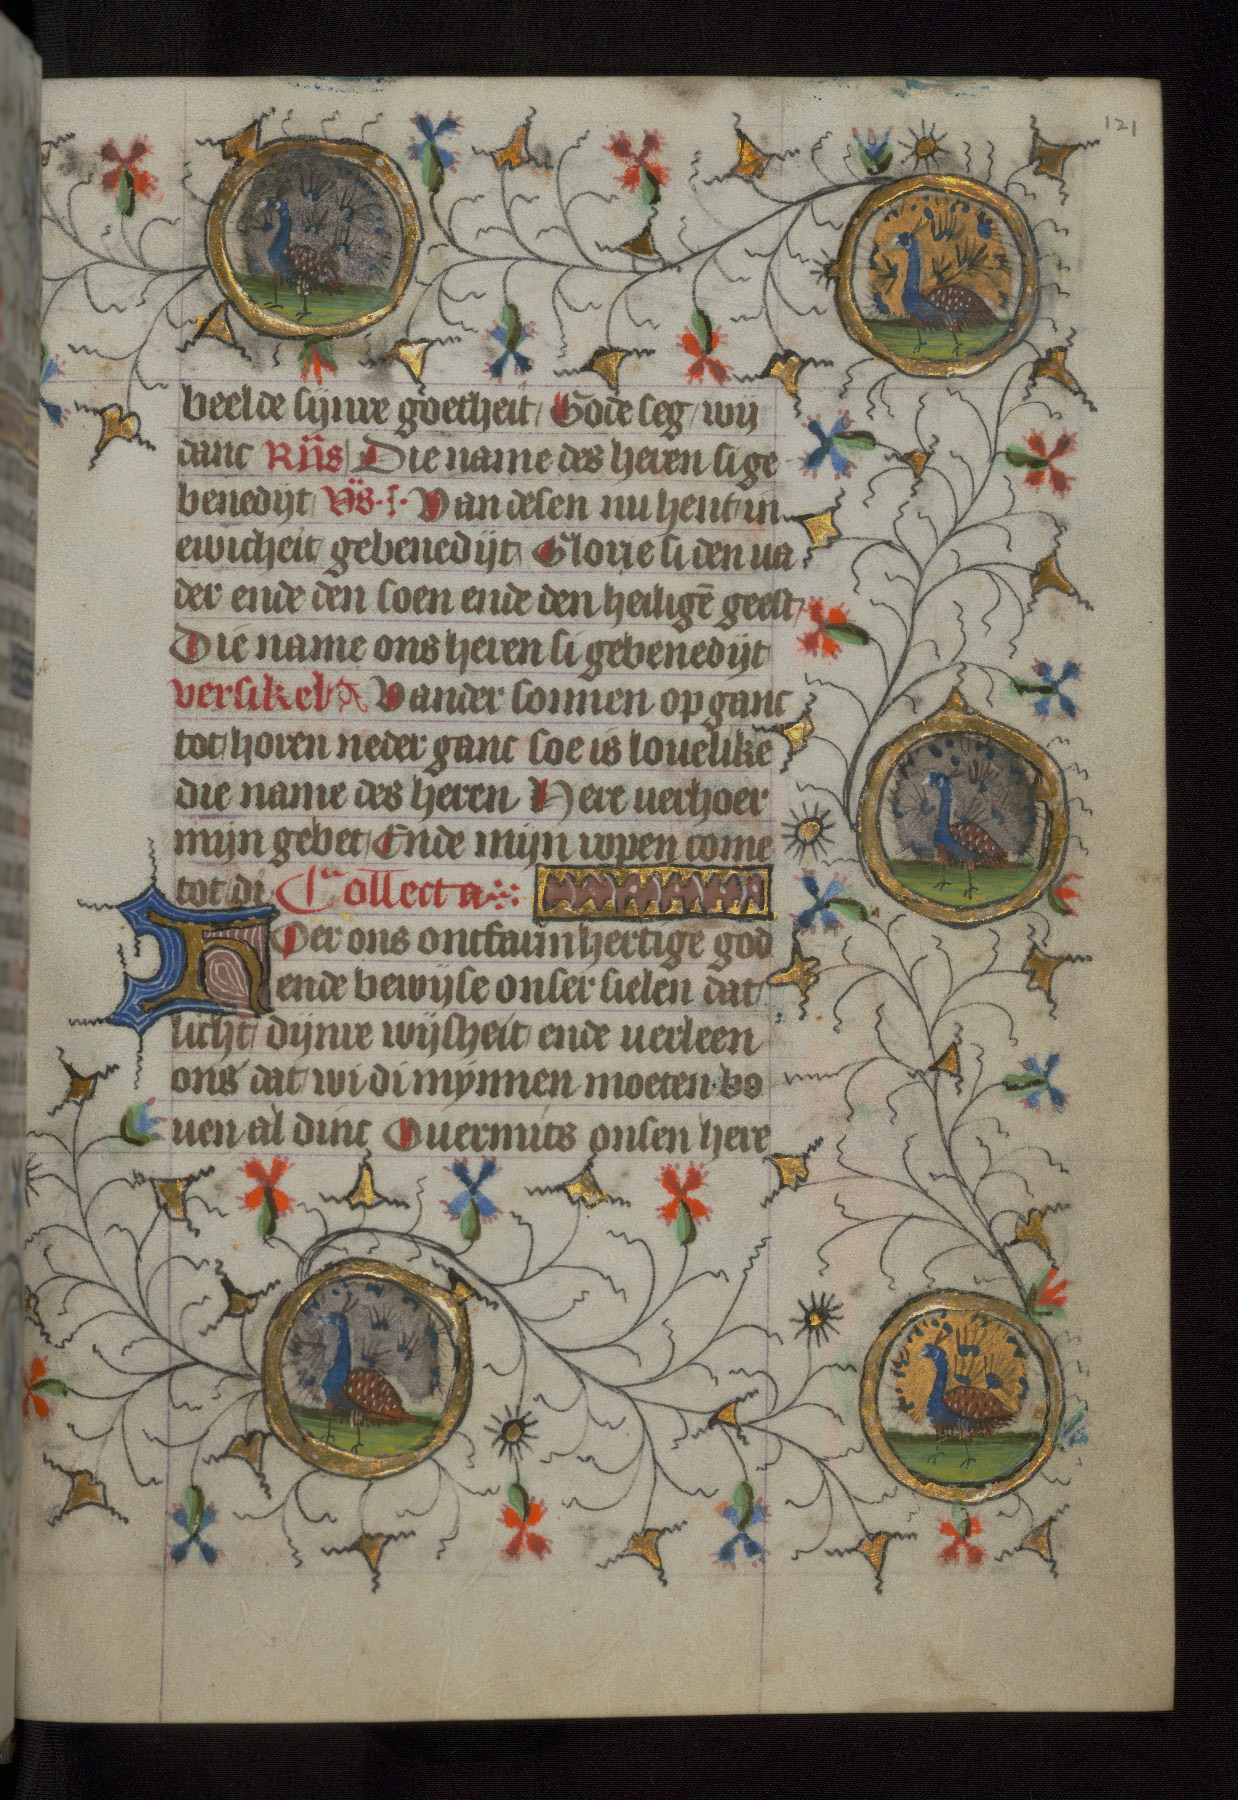 121
beelde sijnre goetheit Gode seg wij
danc Rn̄s Die name des heren si ge
benedijt Vs̄ Van desen nu hent in
ewicheit gebenedijt Glorie si den va
der ende den soen ende den heiligē geest
Die name ons heren si gebenedijt
versikel Vander sonnen op ganc
tot horen neder ganc soe is louelike
die name des heren Here verhoer
mijn gebet Ende mijn ropen come
tot di Collecta
Her ons ontfarmhertige god
ende bewijse onser sielen dat
licht dijnre wijsheit ende verleen
ons dat wi di mynnen moeten bo
uen al dinc Ouermits onsen here